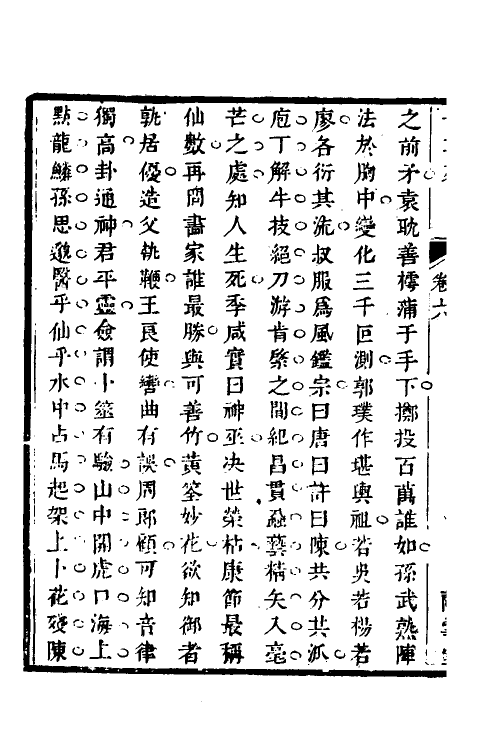 卷六
之前矛袁耽善樗蒲于手下擲投百萬誰如孫武熟陣
法於胸中變化三千叵測郭璞作堪輿祖若吳若楊若
廖各衍其流叔服爲風鑑宗曰唐曰許曰陳共分共派
庖丁解牛技絕刀游肯綮之間紀昌貫蝨藝精矢入毫
芒之處知人生死季咸實曰神巫决世榮枯康節最稱
仙數再問畫家誰最勝與可善竹黃筌妙花欲知御者
孰居優造父執鞭王良使轡曲有誤周郎顧可知音律
獨高卦通神君平靈僉謂卜筮有驗山中開虎口海上
點龍鱗孫思邈醫乎仙乎水中占馬起架上卜花殘陳